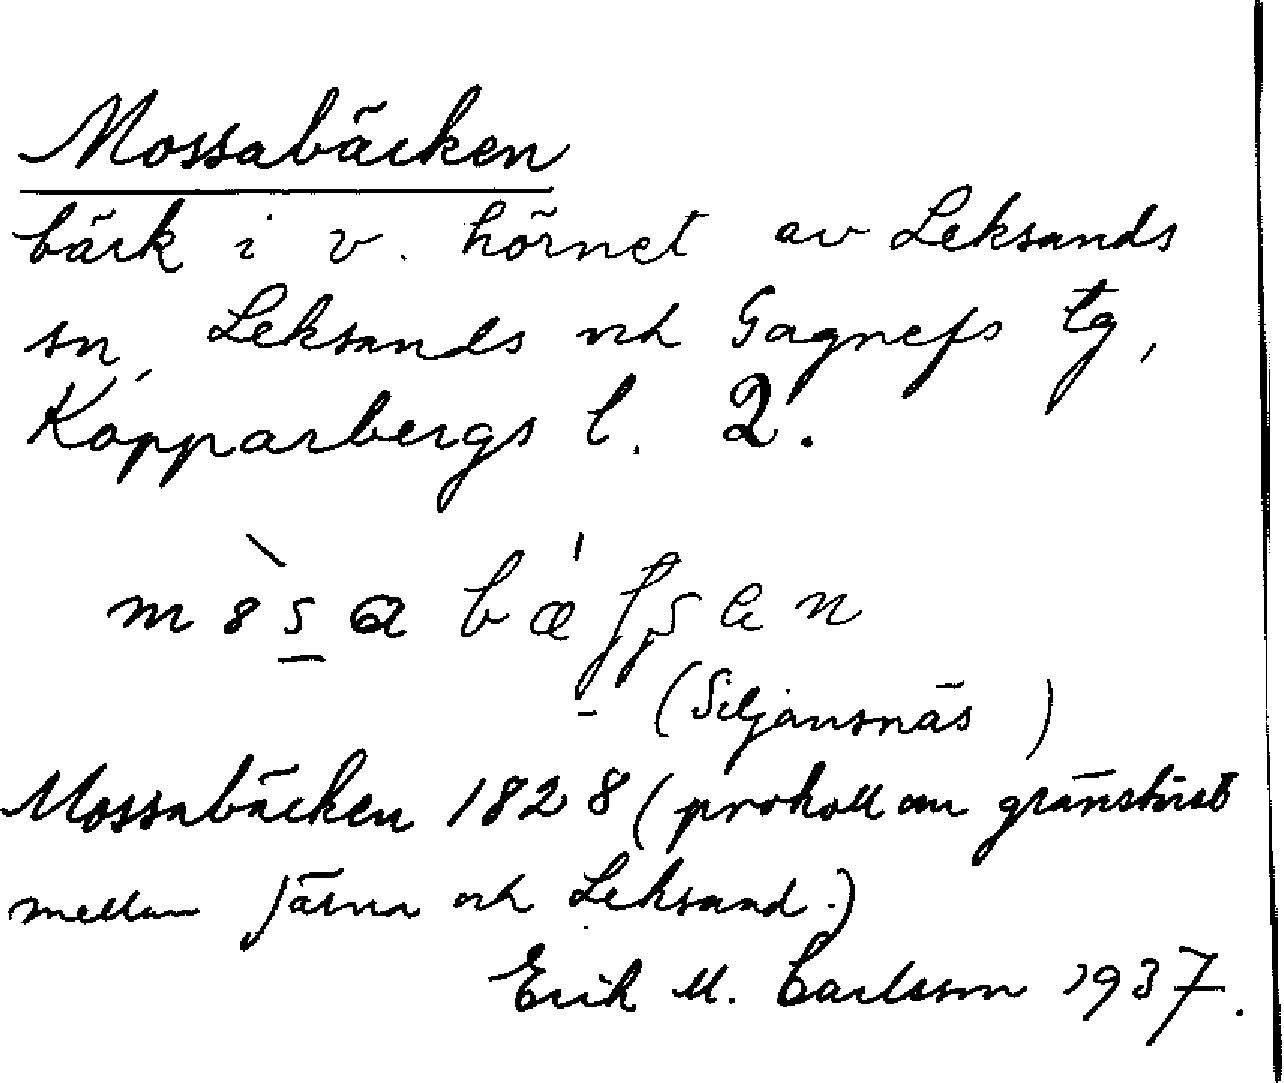 Mossabäcken
bäck i v. hörnet av Leksands
sn, Leksands och Gagnefs tg,
Kopparbergs l. 2.
(Siljansnäs)
Mossabäcken 1828 (prokoll om gränstvist
mellan Järna och Leksand.)
Erik M. Carlsson 1937.